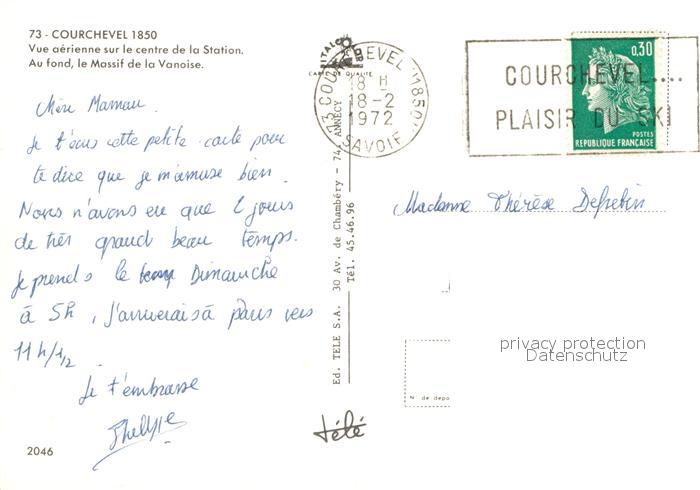 73 - COURCHEVEL 1850
Vue aérienne sur le centre de la Station.
Au fond, le Massif de la Vanoise.
Chère Maman.
Je t'écris cette petite carte pour
te dire que je m'amuse bien.
Nous n'avons eu que 2 jours
de très grand beau temps.
Je prends le Dimanche
à 5h, j'arriverais à Paris vers
11h/1/2
Je t'embrasse
Philippe
2046
Ed. TELE S.A. 30 Av. de Chambéry - 74 ANNECY
Tél. 45.46.96
télé
CARTE DE QUALITÉ
73 COURCHEVEL "1850"
18 H
18-2
1972
SAVOIE
COURCHEVEL....
PLAISIR DU SKI
0,30
POSTES
REPUBLIQUE FRANÇAISE
Madame Thérèse
N° de depo
privacy protection
Datenschutz